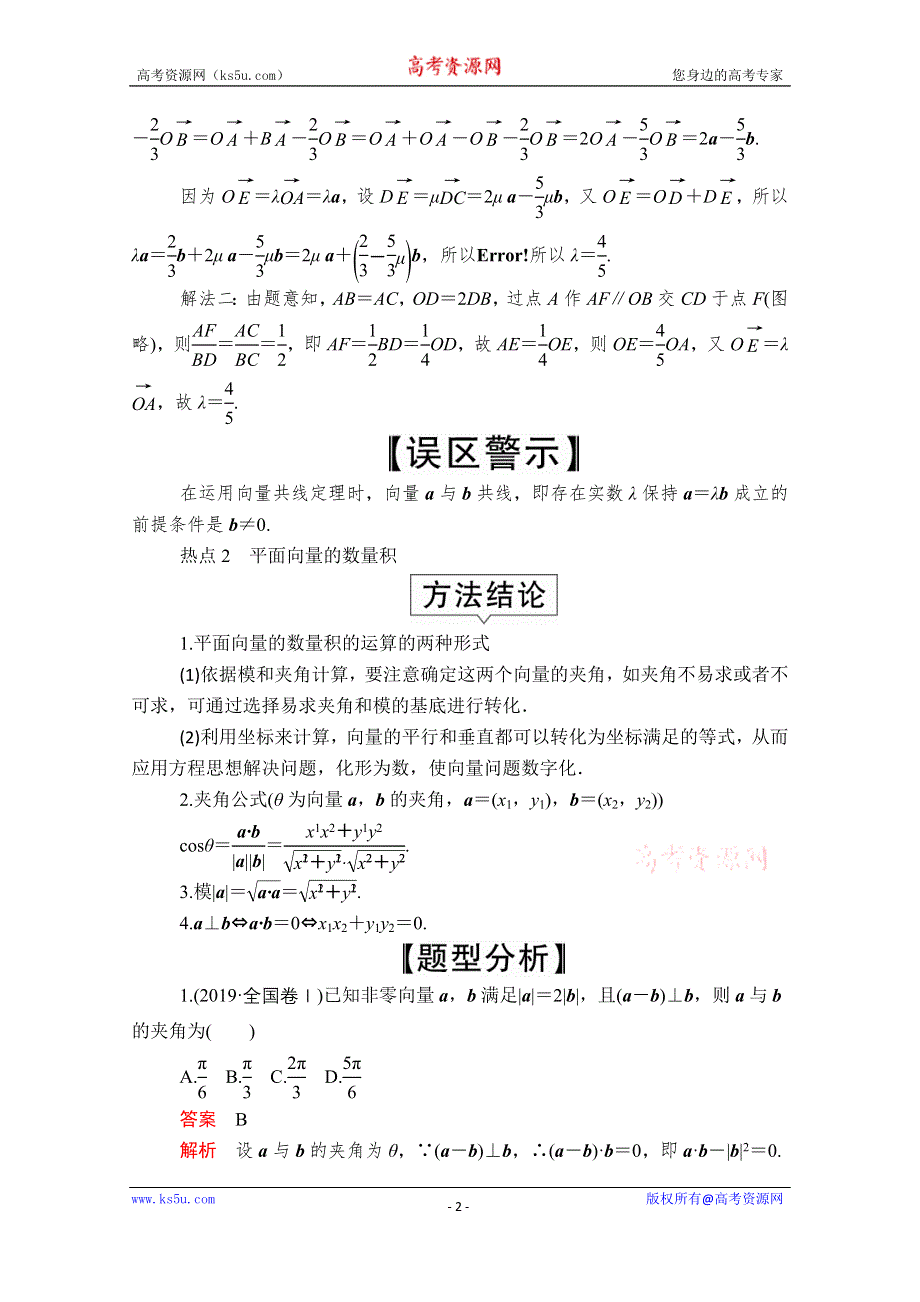 高考资源网（ks5u.com） 高考资源网 您身边的高考专家
－2/3OB→＝OA→＋BA→－2/3OB→＝OA→＋OA→－OB→－2/3OB→＝2OA→－5/3OB→＝2a－5/3b.
因为OE→＝λOA→＝λa，设DE→＝μDC→＝2μ a－5/3μb，又OE→＝OD→＋DE→，所以
λa＝2/3b＋2μ a－5/3μb＝2μ a＋(2/3－5/3μ)b，所以Error!所以λ＝4/5.
解法二：由题意知，AB＝AC，OD＝2DB，过点A作AF∥OB交CD于点F(图
略)，则AF/BD＝AC/BC＝1/2，即AF＝1/2BD＝1/4OD，故AE＝1/4OE，则OE＝4/5OA，又OE→＝λ
OA→，故λ＝4/5.
【误区警示】
在运用向量共线定理时，向量a与b共线，即存在实数λ保持a＝λb成立的
前提条件是b≠0.
热点2 平面向量的数量积
方法结论
1.平面向量的数量积的运算的两种形式
(1)依据模和夹角计算，要注意确定这两个向量的夹角，如夹角不易求或者不
可求，可通过选择易求夹角和模的基底进行转化．
(2)利用坐标来计算，向量的平行和垂直都可以转化为坐标满足的等式，从而
应用方程思想解决问题，化形为数，使向量问题数字化．
2.夹角公式(θ为向量a，b的夹角，a＝(x₁，y₁)，b＝(x₂，y₂))
cosθ＝a·b/|a||b|＝x¹x²＋y¹y²/√(x²₁＋y²₁)·√(x²₂＋y²₂).
高考资源网
3.模|a|＝√(a·a)＝√(x²₁＋y²₁).
4.a⊥b⇔a·b＝0⇔x₁x₂＋y₁y₂＝0.
【题型分析】
1.(2019·全国卷Ⅰ)已知非零向量a，b满足|a|＝2|b|，且(a－b)⊥b，则a与b
的夹角为( )
A.π/6 B.π/3 C.2π/3 D.5π/6
答案 B
解析 设a与b的夹角为θ，∵(a－b)⊥b，∴(a－b)·b＝0，即a·b－|b|²＝0.
www.ks5u.com - 2 - 版权所有@高考资源网